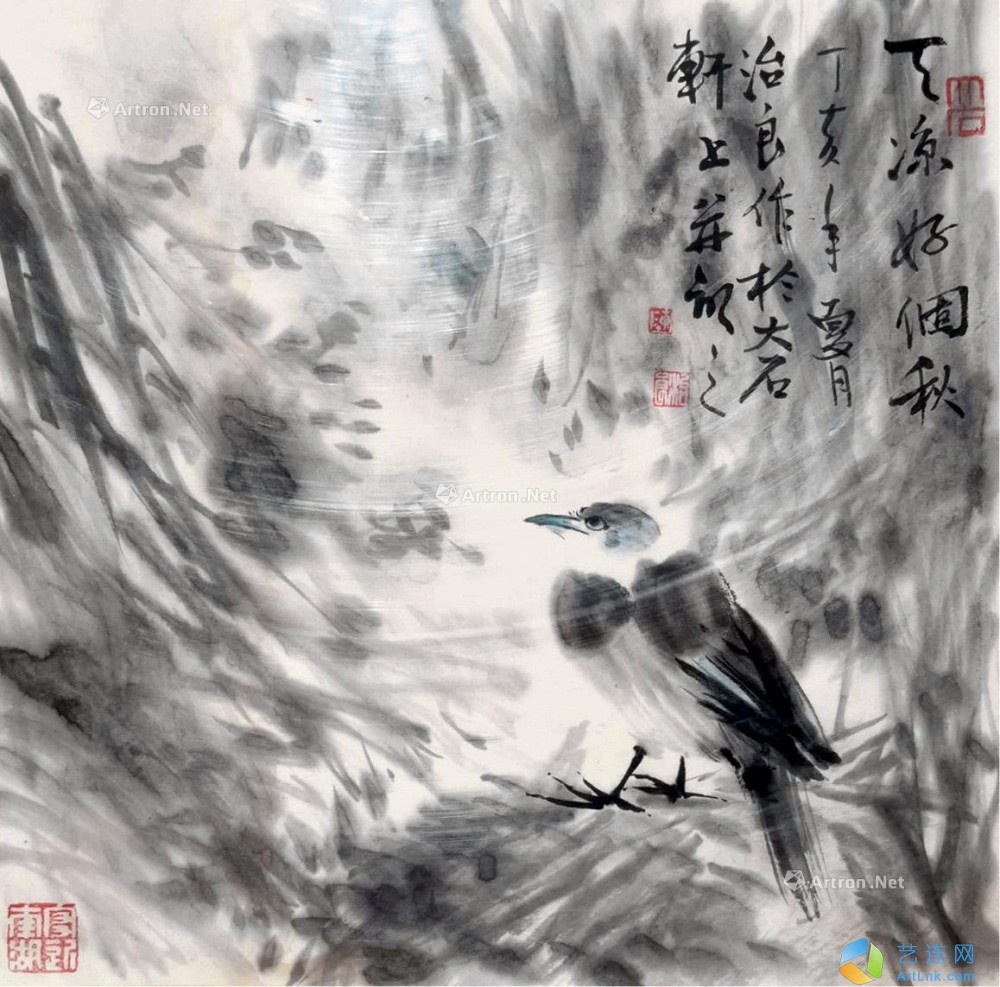 天凉好個秋
丁亥年夏月
治良作於大石
軒上并記之
大石
Artron.Net
Artron.Net
Artron.Net
艺连网
ArtLnk.com